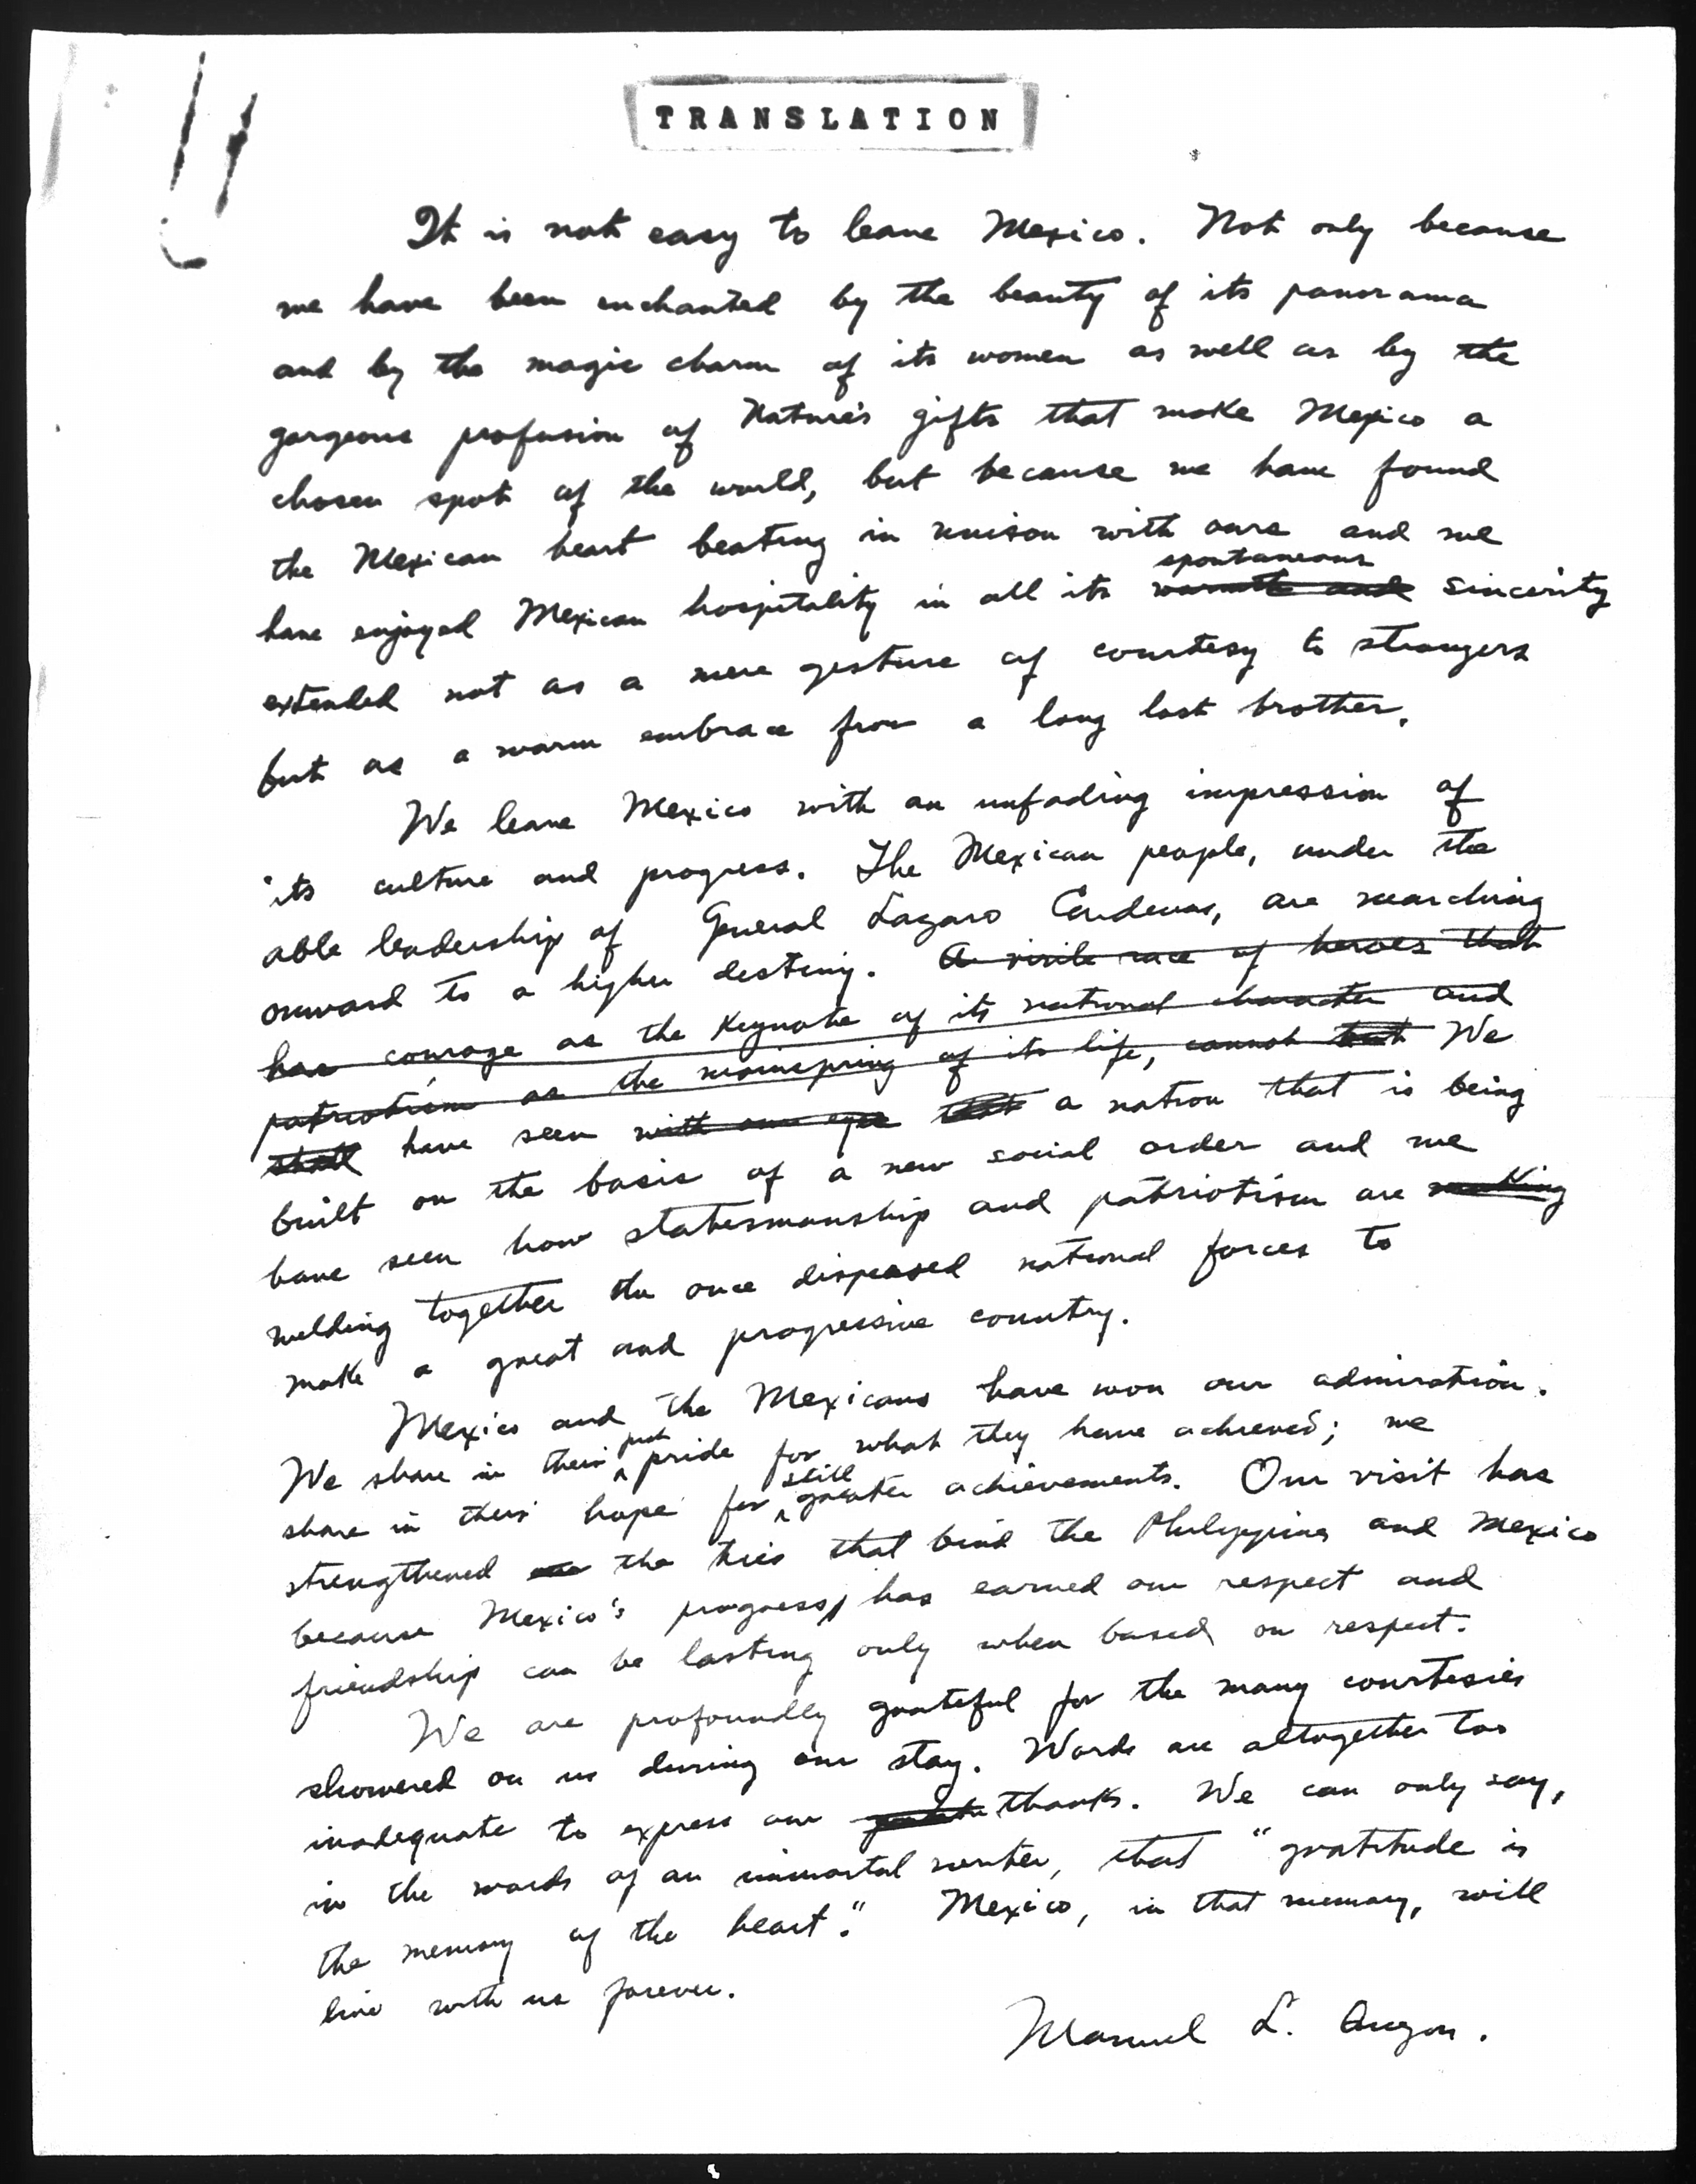 TRANSLATION
It is not easy to leave Mexico. Not only because
we have been enchanted by the beauty of its panorama
and by the magic charm of its women as well as by the
gorgeous profusion of Nature's gifts that make Mexico a
chosen spot of the world, but because we have found
the Mexican heart beating in unison with ours and we
spontaneous
have enjoyed Mexican hospitality in all its warmth and sincerity
extended not as a mere gesture of courtesy to strangers
but as a warm embrace from a long lost brother.
We leave Mexico with an unfading impression of
its culture and progress. The Mexican people, under the
able leadership of General Lazaro Cardenas, are marching
onward to a higher destiny. A virile race of heroes that
has courage as the keynote of its national character and
patriotism as the mainspring of its life, cannot but We
shall have seen with our eyes that a nation that is being
built on the basis of a new social order and we
have seen how statesmanship and patriotism are making
welding together the once dispersed national forces to
make a great and progressive country.
Mexico and the Mexicans have won our admiration.
just
We share in their pride for what they have achieved; we
still
share in their hope for greater achievements. Our visit has
strengthened the ties that bind the Philippines and Mexico
because Mexico's progress, has earned our respect and
friendship can be lasting only when based on respect.
We are profoundly grateful for the many courtesies
showered on us during our stay. Words are altogether too
inadequate to express our thanks. We can only say,
in the words of an immortal writer, that "gratitude is
the memory of the heart." Mexico, in that memory, will
live with us forever.
Manuel L. Quezon.